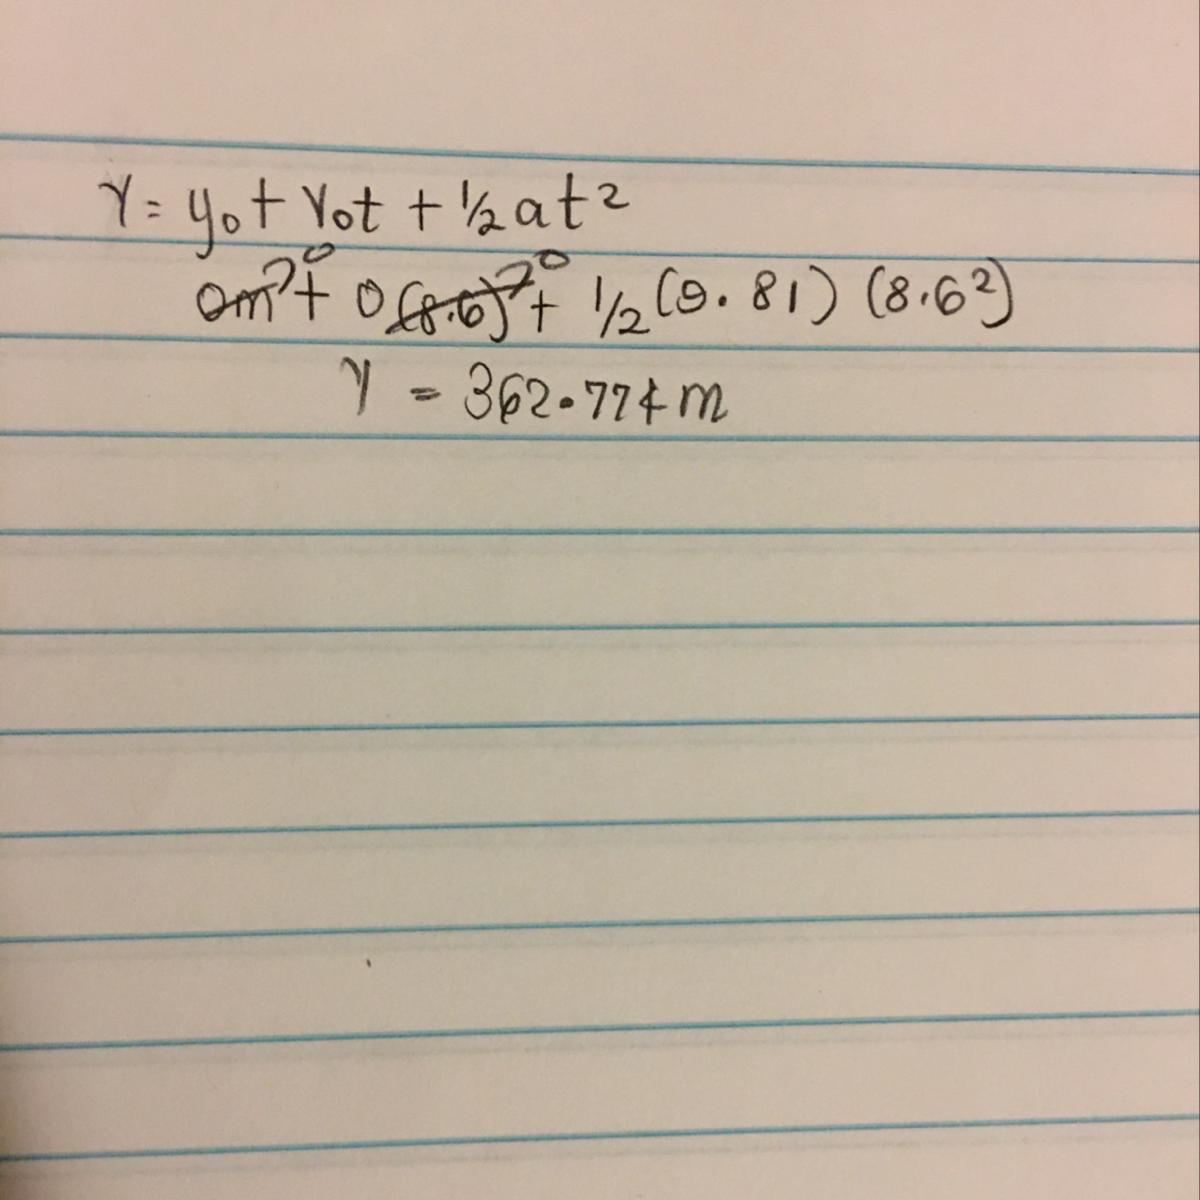 Y = y₀ + V₀t + ½ at²
0m⁰ + 0(8.6)⁰ + 1/2 (9.81) (8.6²)
Y = 362.774 m